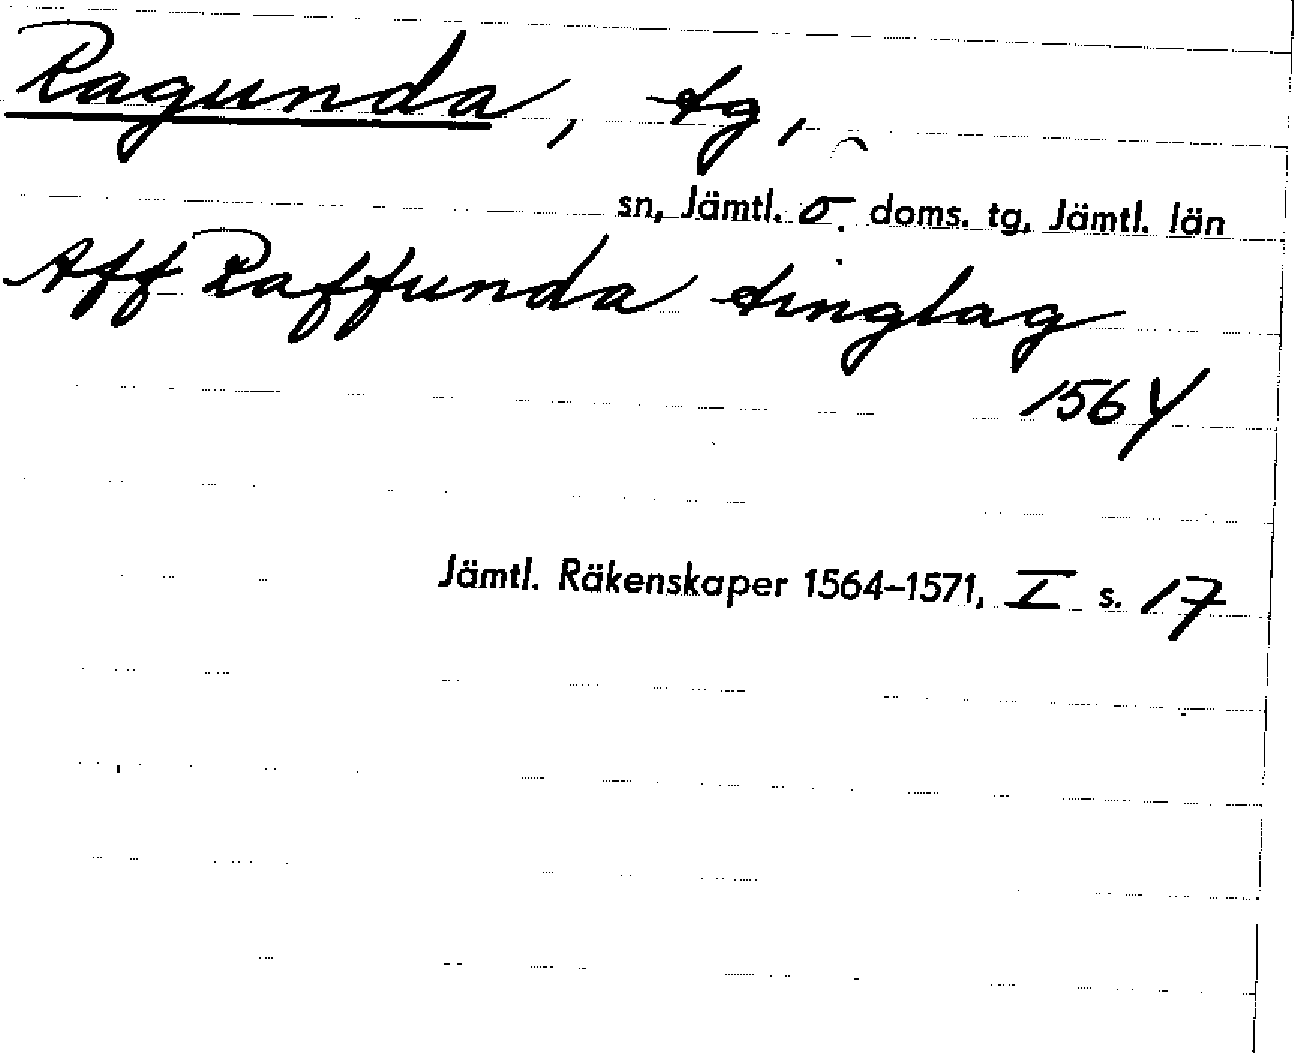 Ragunda, tg,
sn, Jämtl. ö. doms. tg, Jämtl. län
Aff Raffunda tinglag
1564
Jämtl. Räkenskaper 1564–1571, I s. 17